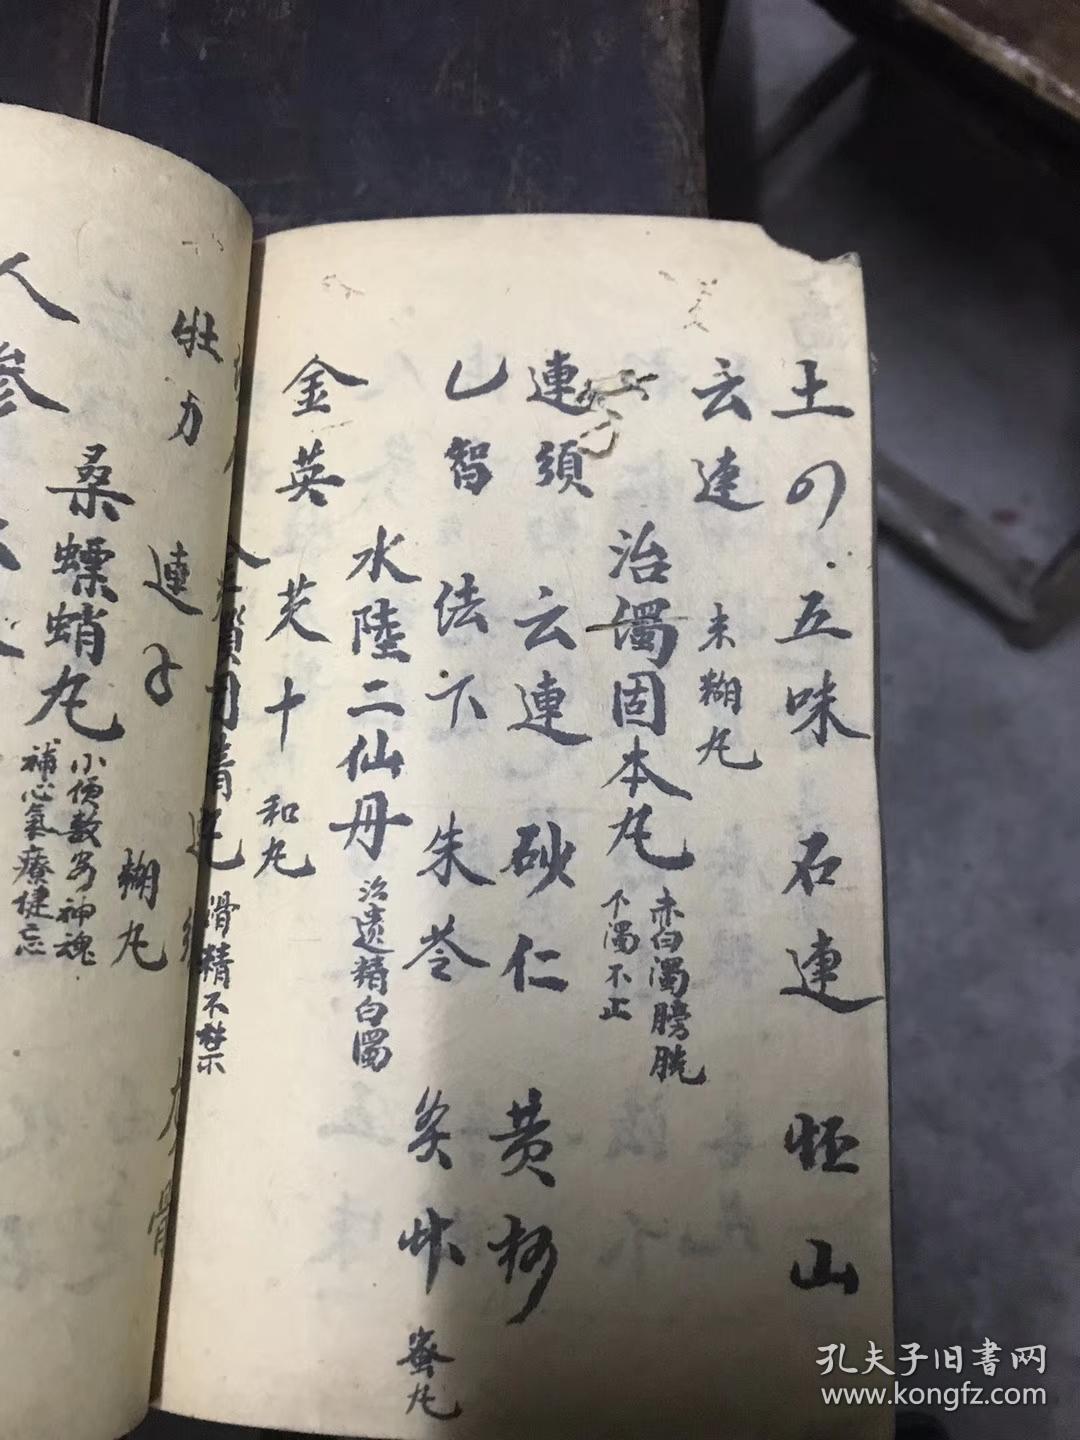 土的五味 石連 怀山
云連 末糊丸
治濁固本丸 赤白濁膀胱
下濁不止
連須 云連 砂仁 黄柏
乚智 法下 朱苓 炙艸 蜜丸
水陸二仙丹 治遗精白濁
金英 芡十 和丸
金鎖固精丸 滑精不禁
牡力 連子 糊丸
桑螵蛸丸 小便数安神魂
補心氣療健忘
人参
孔夫子旧書网
www.kongfz.com